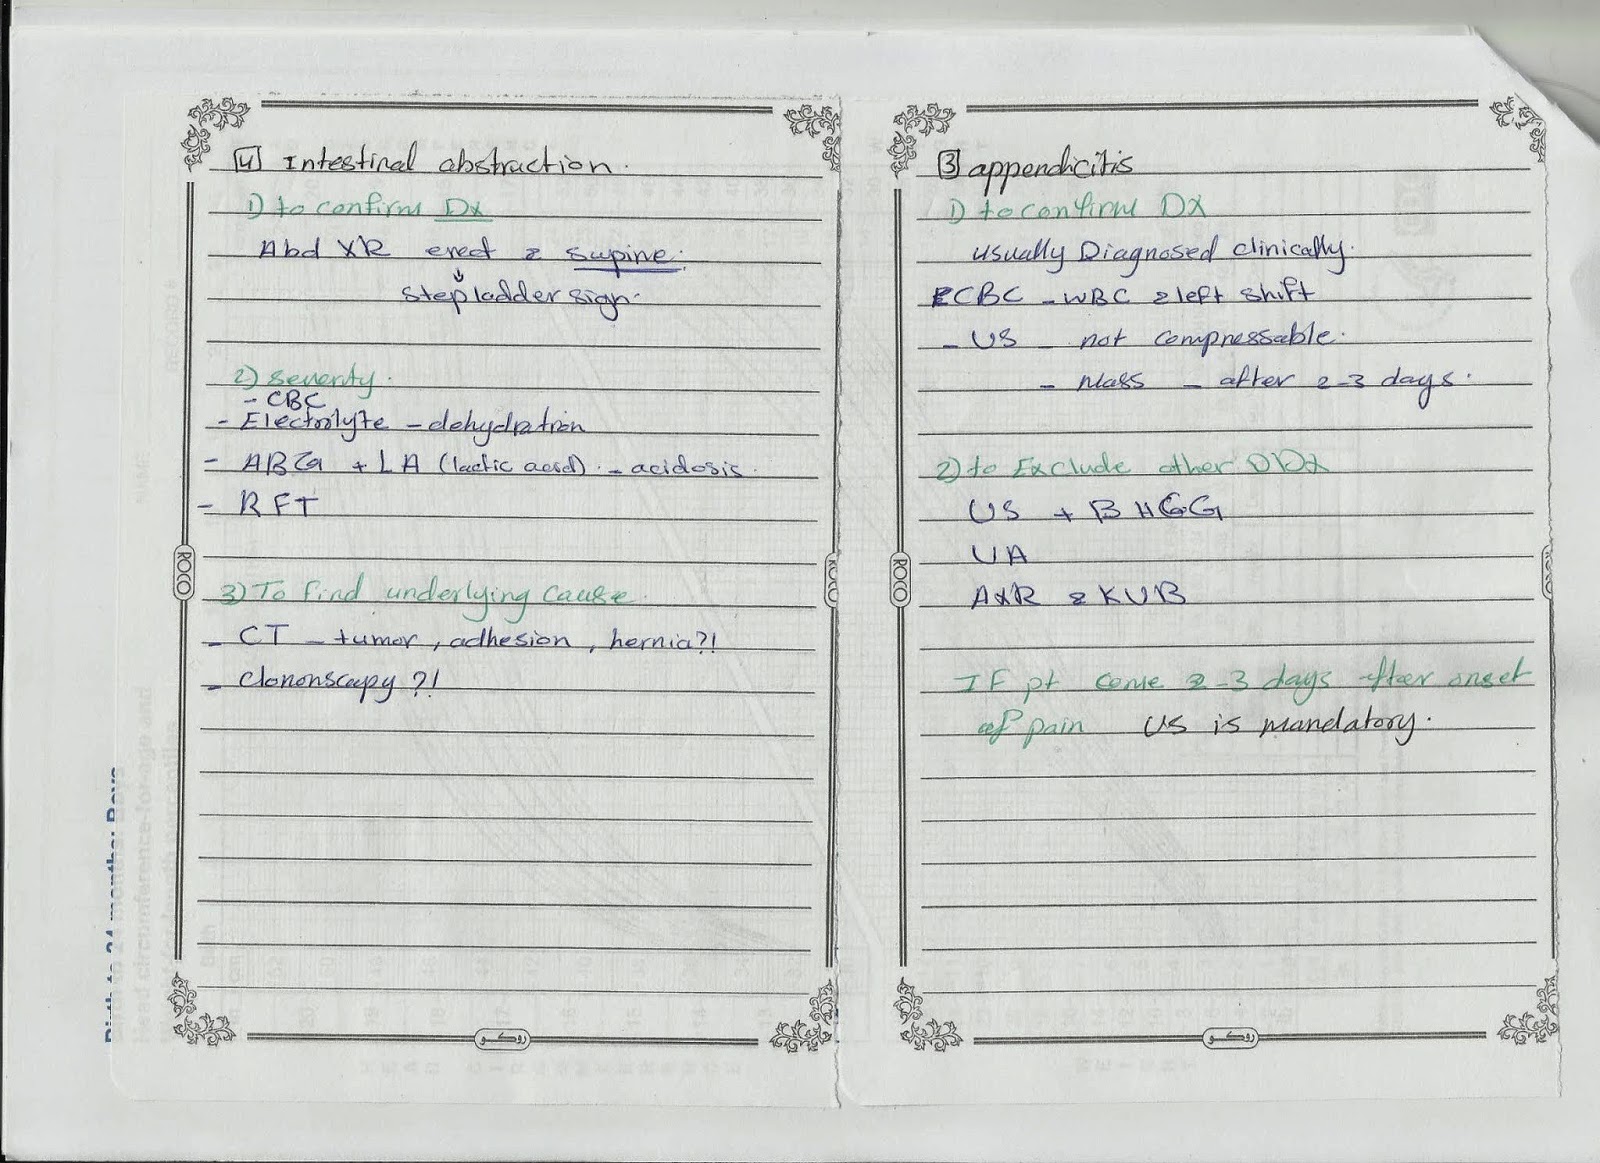 [4] Intestinal abstraction.
1) to confirm Dx
Abd XR erect & supine.
step ladder sign.
2) severity.
- CBC
- Electrolyte - dehydration
- ABG + LA (lactic acid). - acidosis.
- RFT
3) To find underlying cause.
- CT - tumor, adhesion, hernia?!
- Clononscapy ?!
ROCO
ROCO
روكو
[3] appendicitis
1) to confirm DX
usually Diagnosed clinically.
CBC - WBC & left shift
- US - not compressable.
- Mass - after 2-3 days.
2) to Exclude other DDx
US + B HCG
UA
AXR & KUB
IF pt come 2-3 days after onset
of pain US is mandatory.
ROCO
روكو
Birth to 24 months: Boys
Head circumference-for-age and